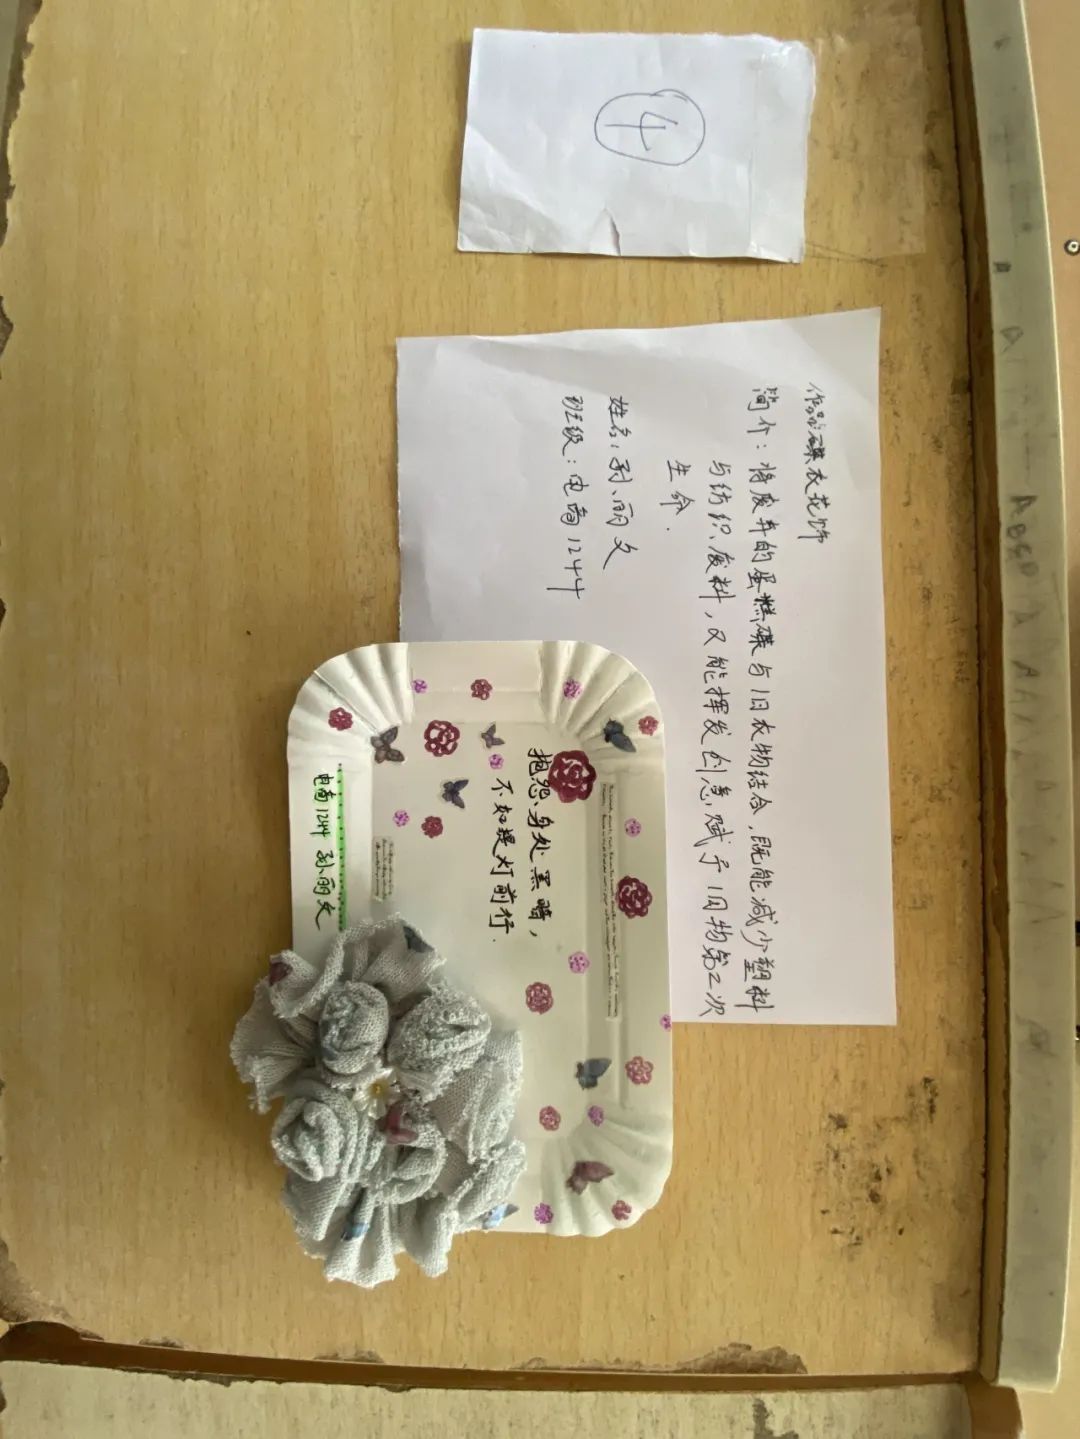 ④
作品：碟衣花饰
简介：将废弃的蛋糕碟与旧衣物结合，既能减少塑料
与纺织废料，又能挥发创意，赋予旧物第二次
生命．
姓名：孙丽文
班级：电商1244
抱怨身处黑暗，
不如提灯前行．
电商1244 孙丽文